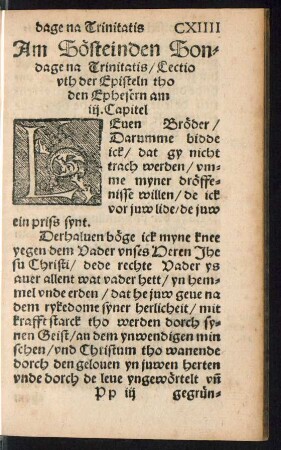 dage na Trinitatis CXIIII
Am Sösteinden Son-
dage na Trinitatis / Lectio
vth der Episteln tho
den Ephesern am
iij. Capitel
LEuen Bröder /
Darumme bidde
ick / dat gy nicht
trach werden / vm-
me myner dröffe-
nisse willen / de ick
vor juw lide / de juw
ein priss synt.
Derhaluen böge ick myne knee
yegen dem Vader vnses Heren Jhe
su Christi / dede rechte Vader ys
auer allent wat vader hett / yn hem-
mel vnde erden / dat he juw geue na
dem rykedome syner herlicheit / mit
krafft starck tho werden dorch sy-
nen Geist / an dem ynwendigen min
schen / vnd Christum tho wanende
dorch den gelouen yn juwen herten
vnde dorch de leue yngewörtelt vñ
Pp iij gegrün-